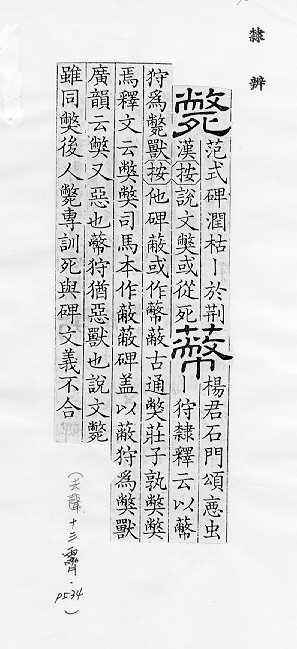 隸辨
斃
范式碑潤枯丨於荆
漢按說文獘或從死
楊君石門頌悪虫
丨狩隸釋云以
狩爲斃獸按他碑蔽或作蔽古通獘莊子孰獘獘
焉釋文云獘獘司馬本作蔽蔽碑盖以蔽狩爲獘獸
廣韻云獘又惡也狩猶惡獸也說文斃
雖同獘後人斃專訓死與碑文義不合
(去聲十三霽. p534)